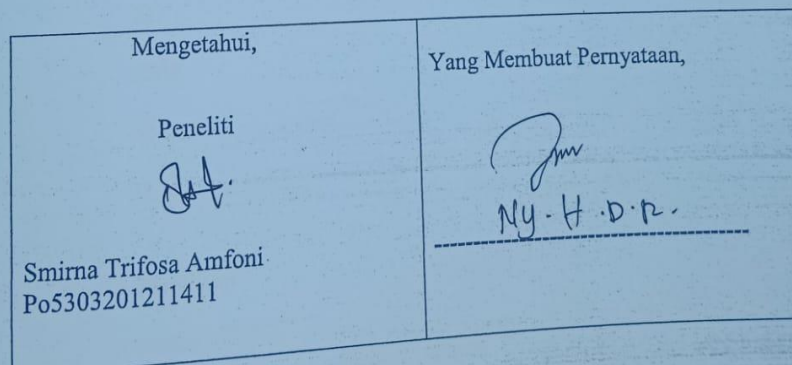 Mengetahui,
Peneliti
Smirna Trifosa Amfoni
Po5303201211411
Yang Membuat Pernyataan,
Ny. H. D. R.